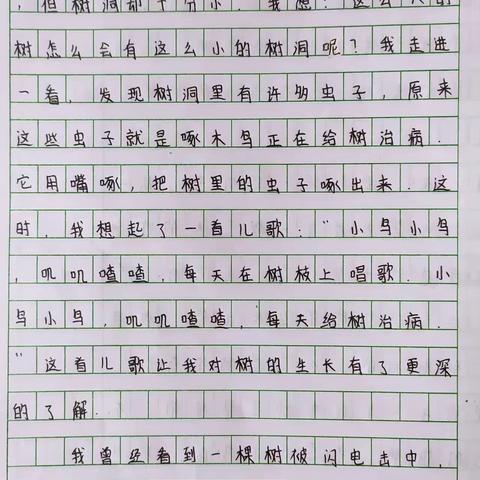 ，但树洞却十分小．我想：这么大的
树怎么会有这么小的树洞呢？我走进
一看，发现树洞里有许多虫子，原来
这些虫子就是啄木鸟正在给树治病．
它用嘴啄，把树里的虫子啄出来．这
时，我想起了一首儿歌：“小鸟小鸟
，叽叽喳喳，每天在树枝上唱歌．小
鸟小鸟，叽叽喳喳，每天给树治病．
”这首儿歌让我对树的生长有了更深
的了解．
我曾经看到一棵树被闪电击中，